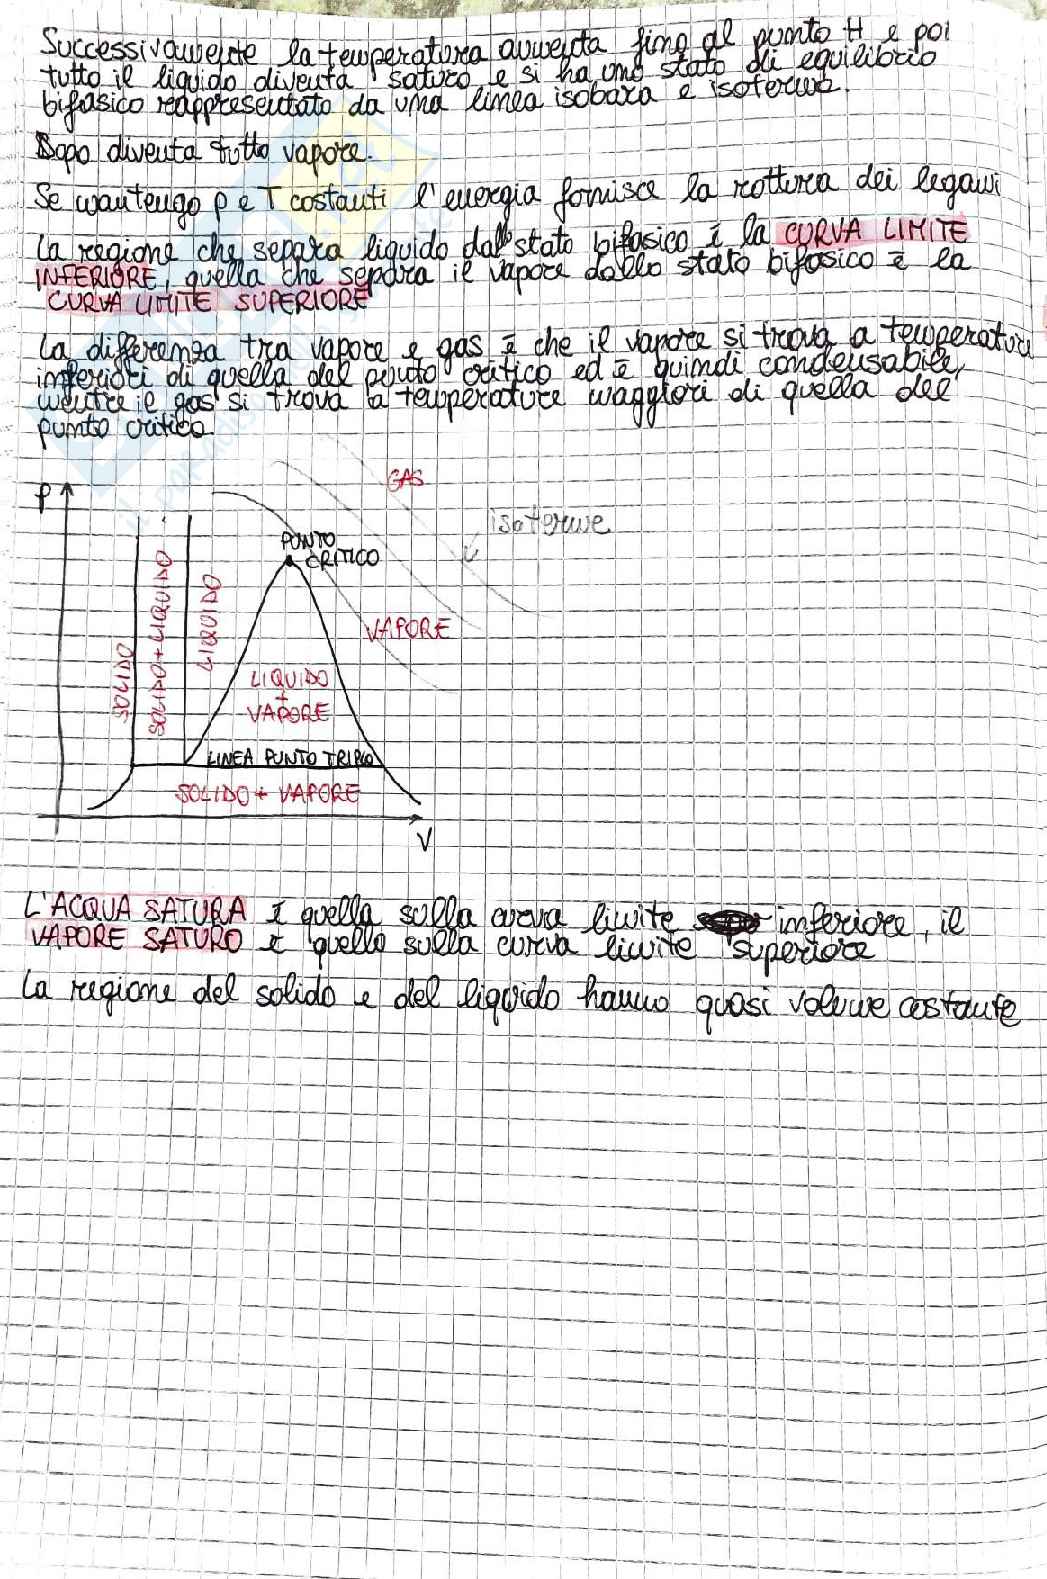 Successivamente la temperatura aumenta fino al punto H e poi
tutto il liquido diventa saturo e si ha uno stato di equilibrio
bifasico rappresentato da una linea isobara e isoterma.
Dopo diventa tutto vapore.
Se mantengo p e T costanti l'energia fornisce la rottura dei legami
La regione che separa liquido dallo stato bifasico è la CURVA LIMITE
INFERIORE, quella che separa il vapore dallo stato bifasico è la
CURVA LIMITE SUPERIORE
La differenza tra vapore e gas è che il vapore si trova a temperature
inferiori di quella del punto critico ed è quindi condensabile,
mentre il gas si trova a temperature maggiori di quella del
punto critico.
P
GAS
isoterme
PUNTO
CRITICO
SOLIDO
SOLIDO+LIQUIDO
LIQUIDO
VAPORE
LIQUIDO
+
VAPORE
LINEA PUNTO TRIPLO
SOLIDO + VAPORE
V
L'ACQUA SATURA è quella sulla curva limite inferiore, il
VAPORE SATURO è quello sulla curva limite superiore
La regione del solido e del liquido hanno quasi volume costante